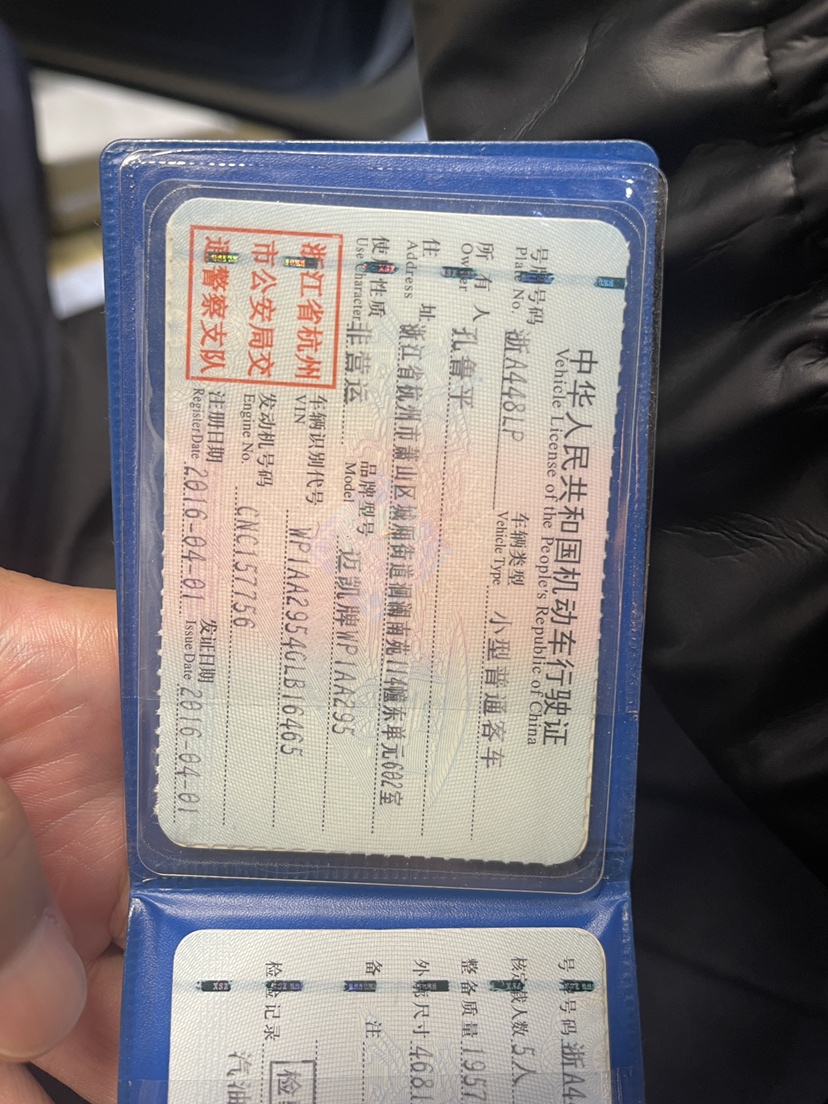 中华人民共和国机动车行驶证
Vehicle License of the People's Republic of China
号牌号码 浙A448LP 车辆类型 小型普通客车
Plate No. Vehicle Type
所有人 孔鲁平
Owner
住址 浙江省杭州市萧山区城厢街道洄澜南苑114幢东单元602室
Address
使用性质 非营运 品牌型号 迈凯牌WP1AA295
Use Character Model
浙江省杭州
市公安局交
通警察支队
车辆识别代号 WP1AA2954GLB16465
VIN
发动机号码 CNC157756
Engine No.
注册日期 2016-04-01 发证日期 2016-04-01
Register Date Issue Date
号牌号码 浙A4
核定载人数 5人
整备质量 1957
外廓尺寸 4681
备注
检验记录
汽油